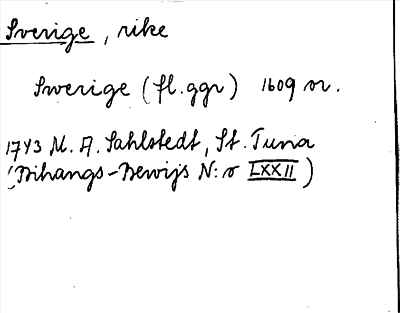 Sverige, rike
Sverige (fl. ggr) 1609 or.
1743 M. A. Sahlstedt, St. Tuna
(Bihangs-Bewijs N:o LXXII)